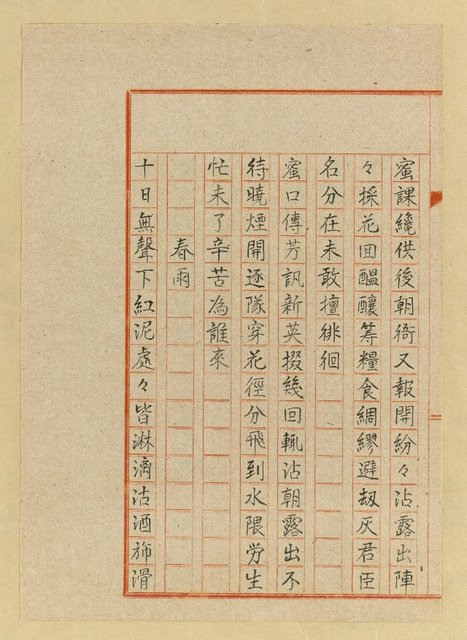 蜜課纔供後朝衙又報開紛々沾露出陣
々採花回醞釀籌糧食綢繆避刼灰君臣
名分在未敢擅徘徊
蜜口傳芳訊新英掇幾回輒沾朝露出不
待曉煙開逐隊穿花徑分飛到水隈労生
忙未了辛苦為誰來
春雨
十日無聲下紅泥處々皆淋漓沽酒旆滑